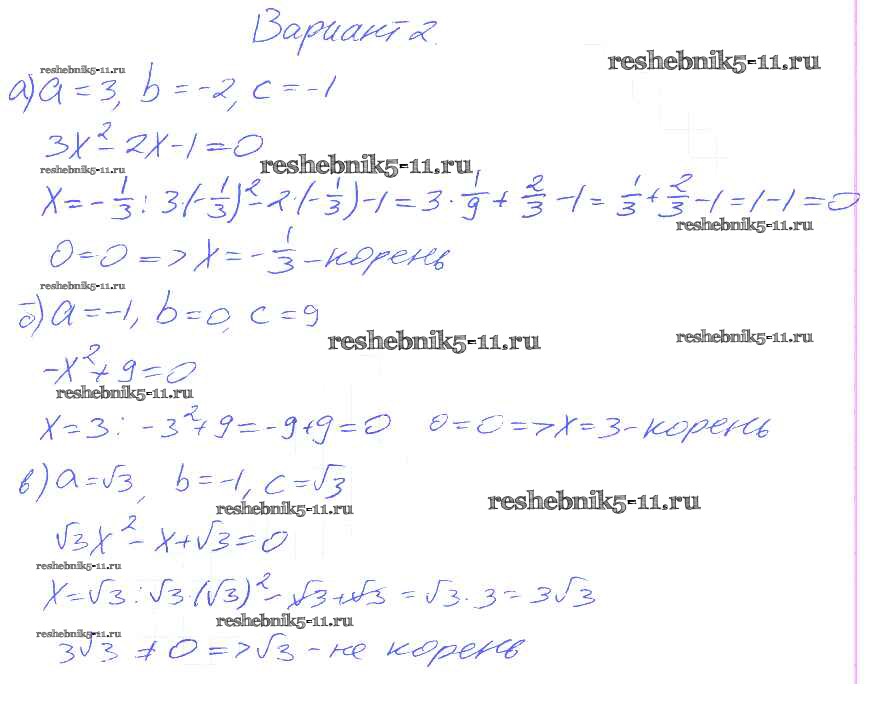 Вариант 2.
reshebnik5-11.ru
reshebnik5-11.ru
а) a = 3, b = -2, c = -1
3x² - 2x - 1 = 0
reshebnik5-11.ru
reshebnik5-11.ru
x = -1/3 : 3·(-1/3)² - 2·(-1/3) - 1 = 3·1/9 + 2/3 - 1 = 1/3 + 2/3 - 1 = 1 - 1 = 0
reshebnik5-11.ru
0 = 0 => x = -1/3 - корень
reshebnik5-11.ru
б) a = -1, b = 0, c = 9
reshebnik5-11.ru
reshebnik5-11.ru
-x² + 9 = 0
reshebnik5-11.ru
x = 3 : -3² + 9 = -9 + 9 = 0 0 = 0 => x = 3 - корень
в) a = √3, b = -1, c = √3
reshebnik5-11.ru
reshebnik5-11.ru
√3x² - x + √3 = 0
reshebnik5-11.ru
x = √3 : √3·(√3)² - √3 + √3 = √3·3 = 3√3
reshebnik5-11.ru
reshebnik5-11.ru
3√3 ≠ 0 => √3 - не корень